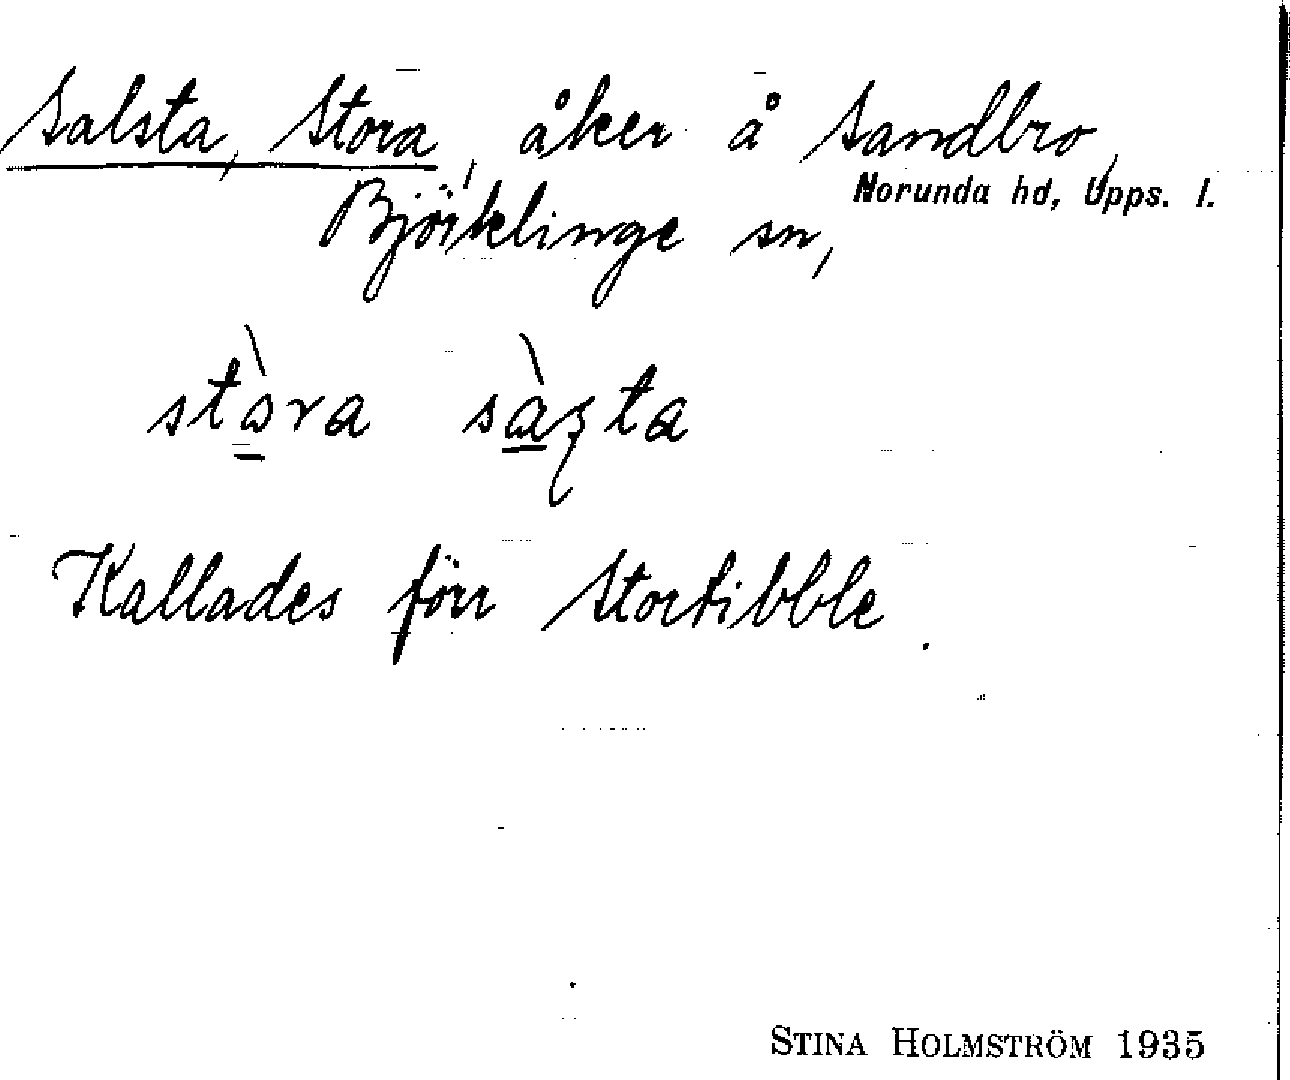 Salsta, Stora, åker å Sandbro,
Norunda hd, Upps. l.
Björklinge sn,
stòra sàʂta
Kallades förr Stortibble.
STINA HOLMSTRÖM 1935